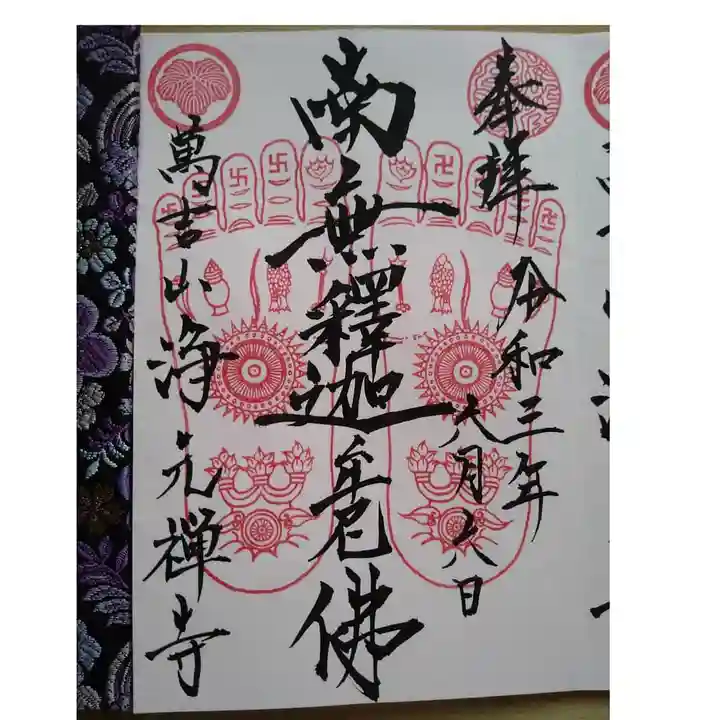 奉拝 令和三年
六月 八日
南無釋迦牟尼佛
萬吉山 浄元禅寺